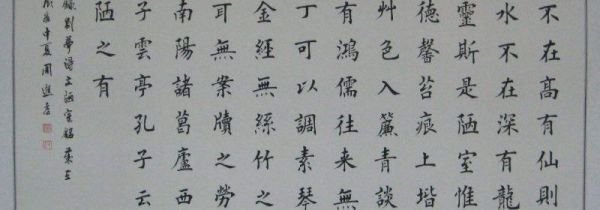 不在高有仙則
水不在深有龍
靈斯是陋室惟
德馨苔痕上堦
艸色入簾青談
有鴻儒往来無
丁可以調素琴
金經無絲竹之
耳無案牘之勞
南陽諸葛廬西
子雲亭孔子云
陋之有
錄劉夢得陋室銘
中夏周